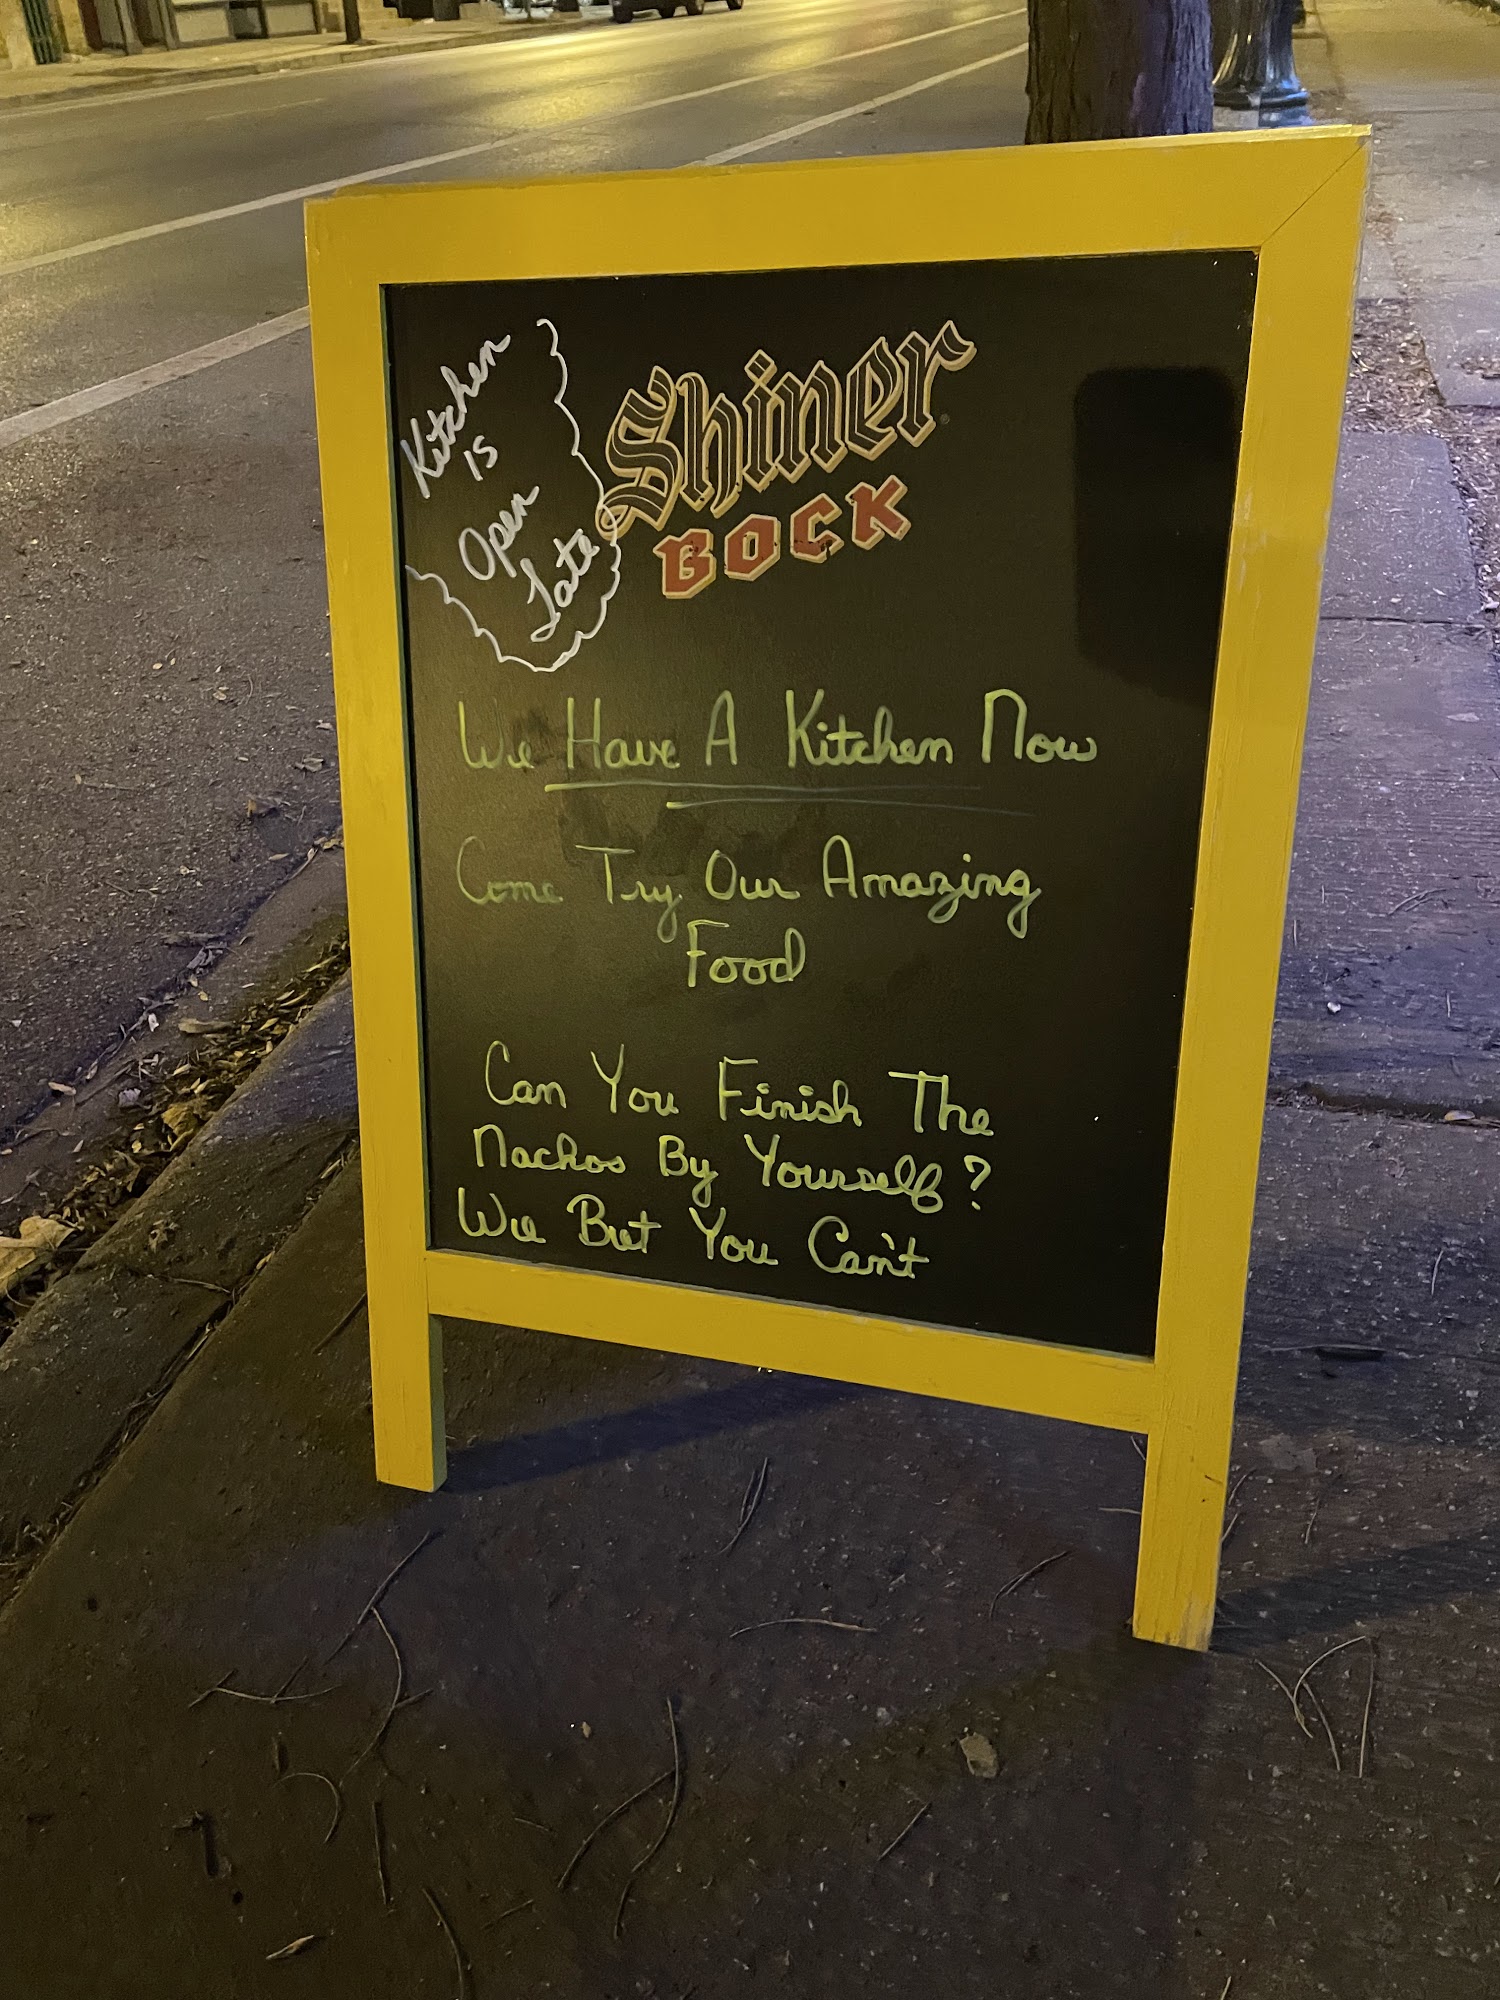 Kitchen
is
Open
Late
Shiner
BOCK
We Have A Kitchen Now
Come Try Our Amazing
Food
Can You Finish The
Nachos By Yourself?
We Bet You Can't